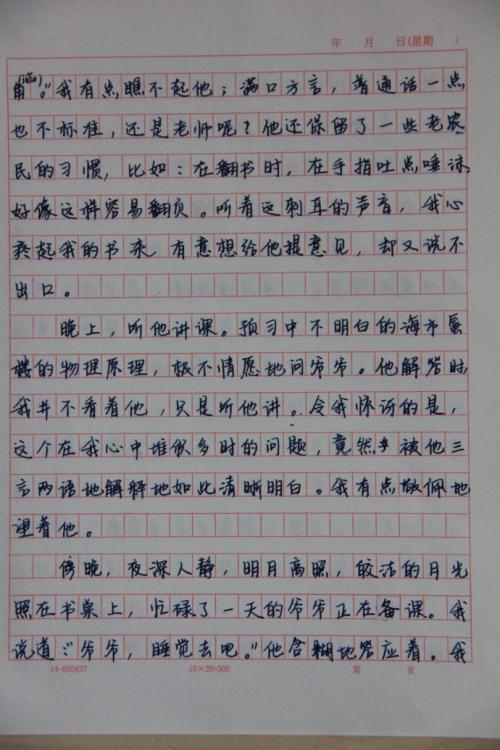 年 月 日(星期 )
甪(lù)。"我有点瞧不起他；满口方言，普通话一点
也不标准，还是老师呢？他还保留了一些老农
民的习惯，比如：在翻书时，在手指吐点唾沫
好像这样容易翻页。听着这刺耳的声音，我心
疼起我的书来，有意想给他提意见，却又说不
出口。
晚上，听他讲课。预习中不明白的海市蜃
楼的物理原理，极不情愿地问爷爷。他解答时
我并不看着他，只是听他讲。令我惊讶的是，
这个在我心中堆积多时的问题，竟然被他三
言两语地解释地如此清晰明白。我有点敬佩地
望着他。
傍晚，夜深人静，明月高照，皎洁的月光
照在书桌上，忙碌了一天的爷爷正在备课。我
说道："爷爷，睡觉去吧。"他含糊地答应着。我
14-650437 15×20=300 第 页